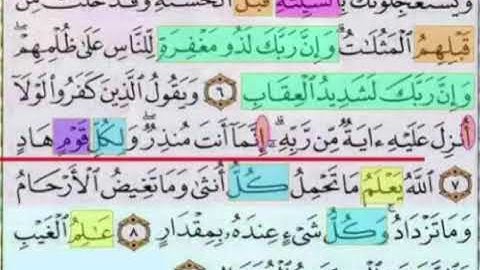 وَيَسْتَعْجِلُونَكَ بِٱلسَّيِّئَةِ قَبْلَ ٱلْحَسَنَةِ وَقَدْ خَلَتْ مِن
قَبْلِهِمُ ٱلْمَثُلَـٰتُ ۗ وَإِنَّ رَبَّكَ لَذُو مَغْفِرَةٍ لِّلنَّاسِ عَلَىٰ ظُلْمِهِمْ ۖ
وَإِنَّ رَبَّكَ لَشَدِيدُ ٱلْعِقَابِ ٦ وَيَقُولُ ٱلَّذِينَ كَفَرُوا۟ لَوْلَآ
أُنزِلَ عَلَيْهِ ءَايَةٌ مِّن رَّبِّهِۦٓ ۗ إِنَّمَآ أَنتَ مُنذِرٌ ۖ وَلِكُلِّ قَوْمٍ هَادٍ
٧ ٱللَّهُ يَعْلَمُ مَا تَحْمِلُ كُلُّ أُنثَىٰ وَمَا تَغِيضُ ٱلْأَرْحَامُ
وَمَا تَزْدَادُ ۖ وَكُلُّ شَىْءٍ عِندَهُۥ بِمِقْدَارٍ ٨ عَـٰلِمُ ٱلْغَيْبِ